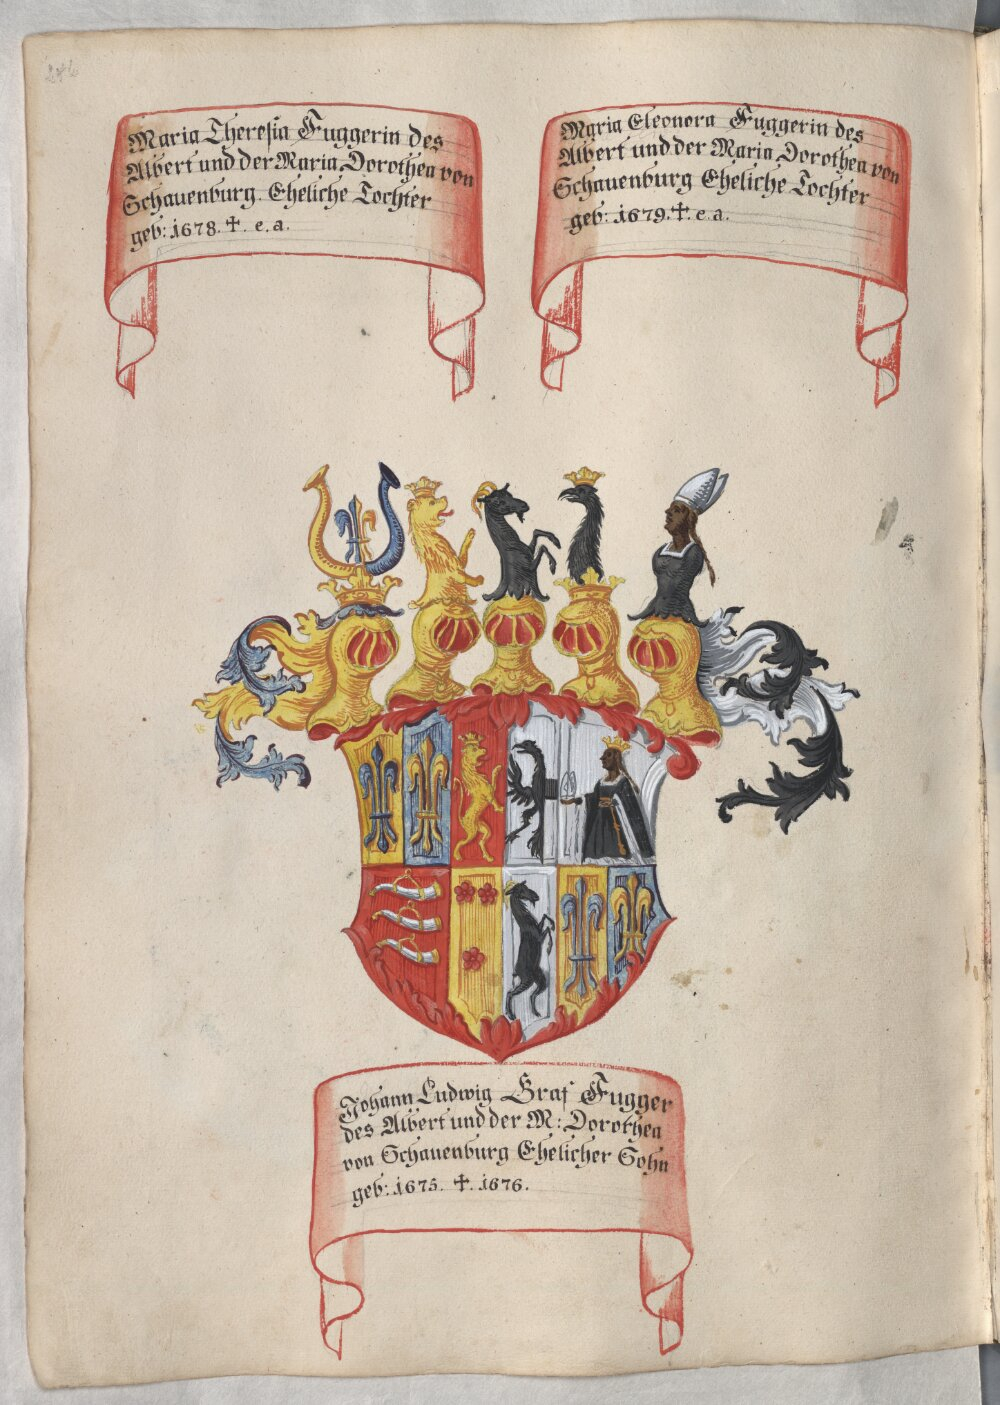 Maria Theresia Fuggerin des
Albert und der Maria Dorothea von
Schauenburg. Eheliche Tochter
geb: 1678. ✝. e. a.
Maria Eleonora Fuggerin des
Albert und der Maria Dorothea von
Schauenburg Eheliche Tochter
geb: 1679. ✝. e a.
Johann Ludwig Graf Fugger
des Albert und der M: Dorothea
von Schauenburg Ehelicher Sohn
geb: 1675. ✝. 1676.